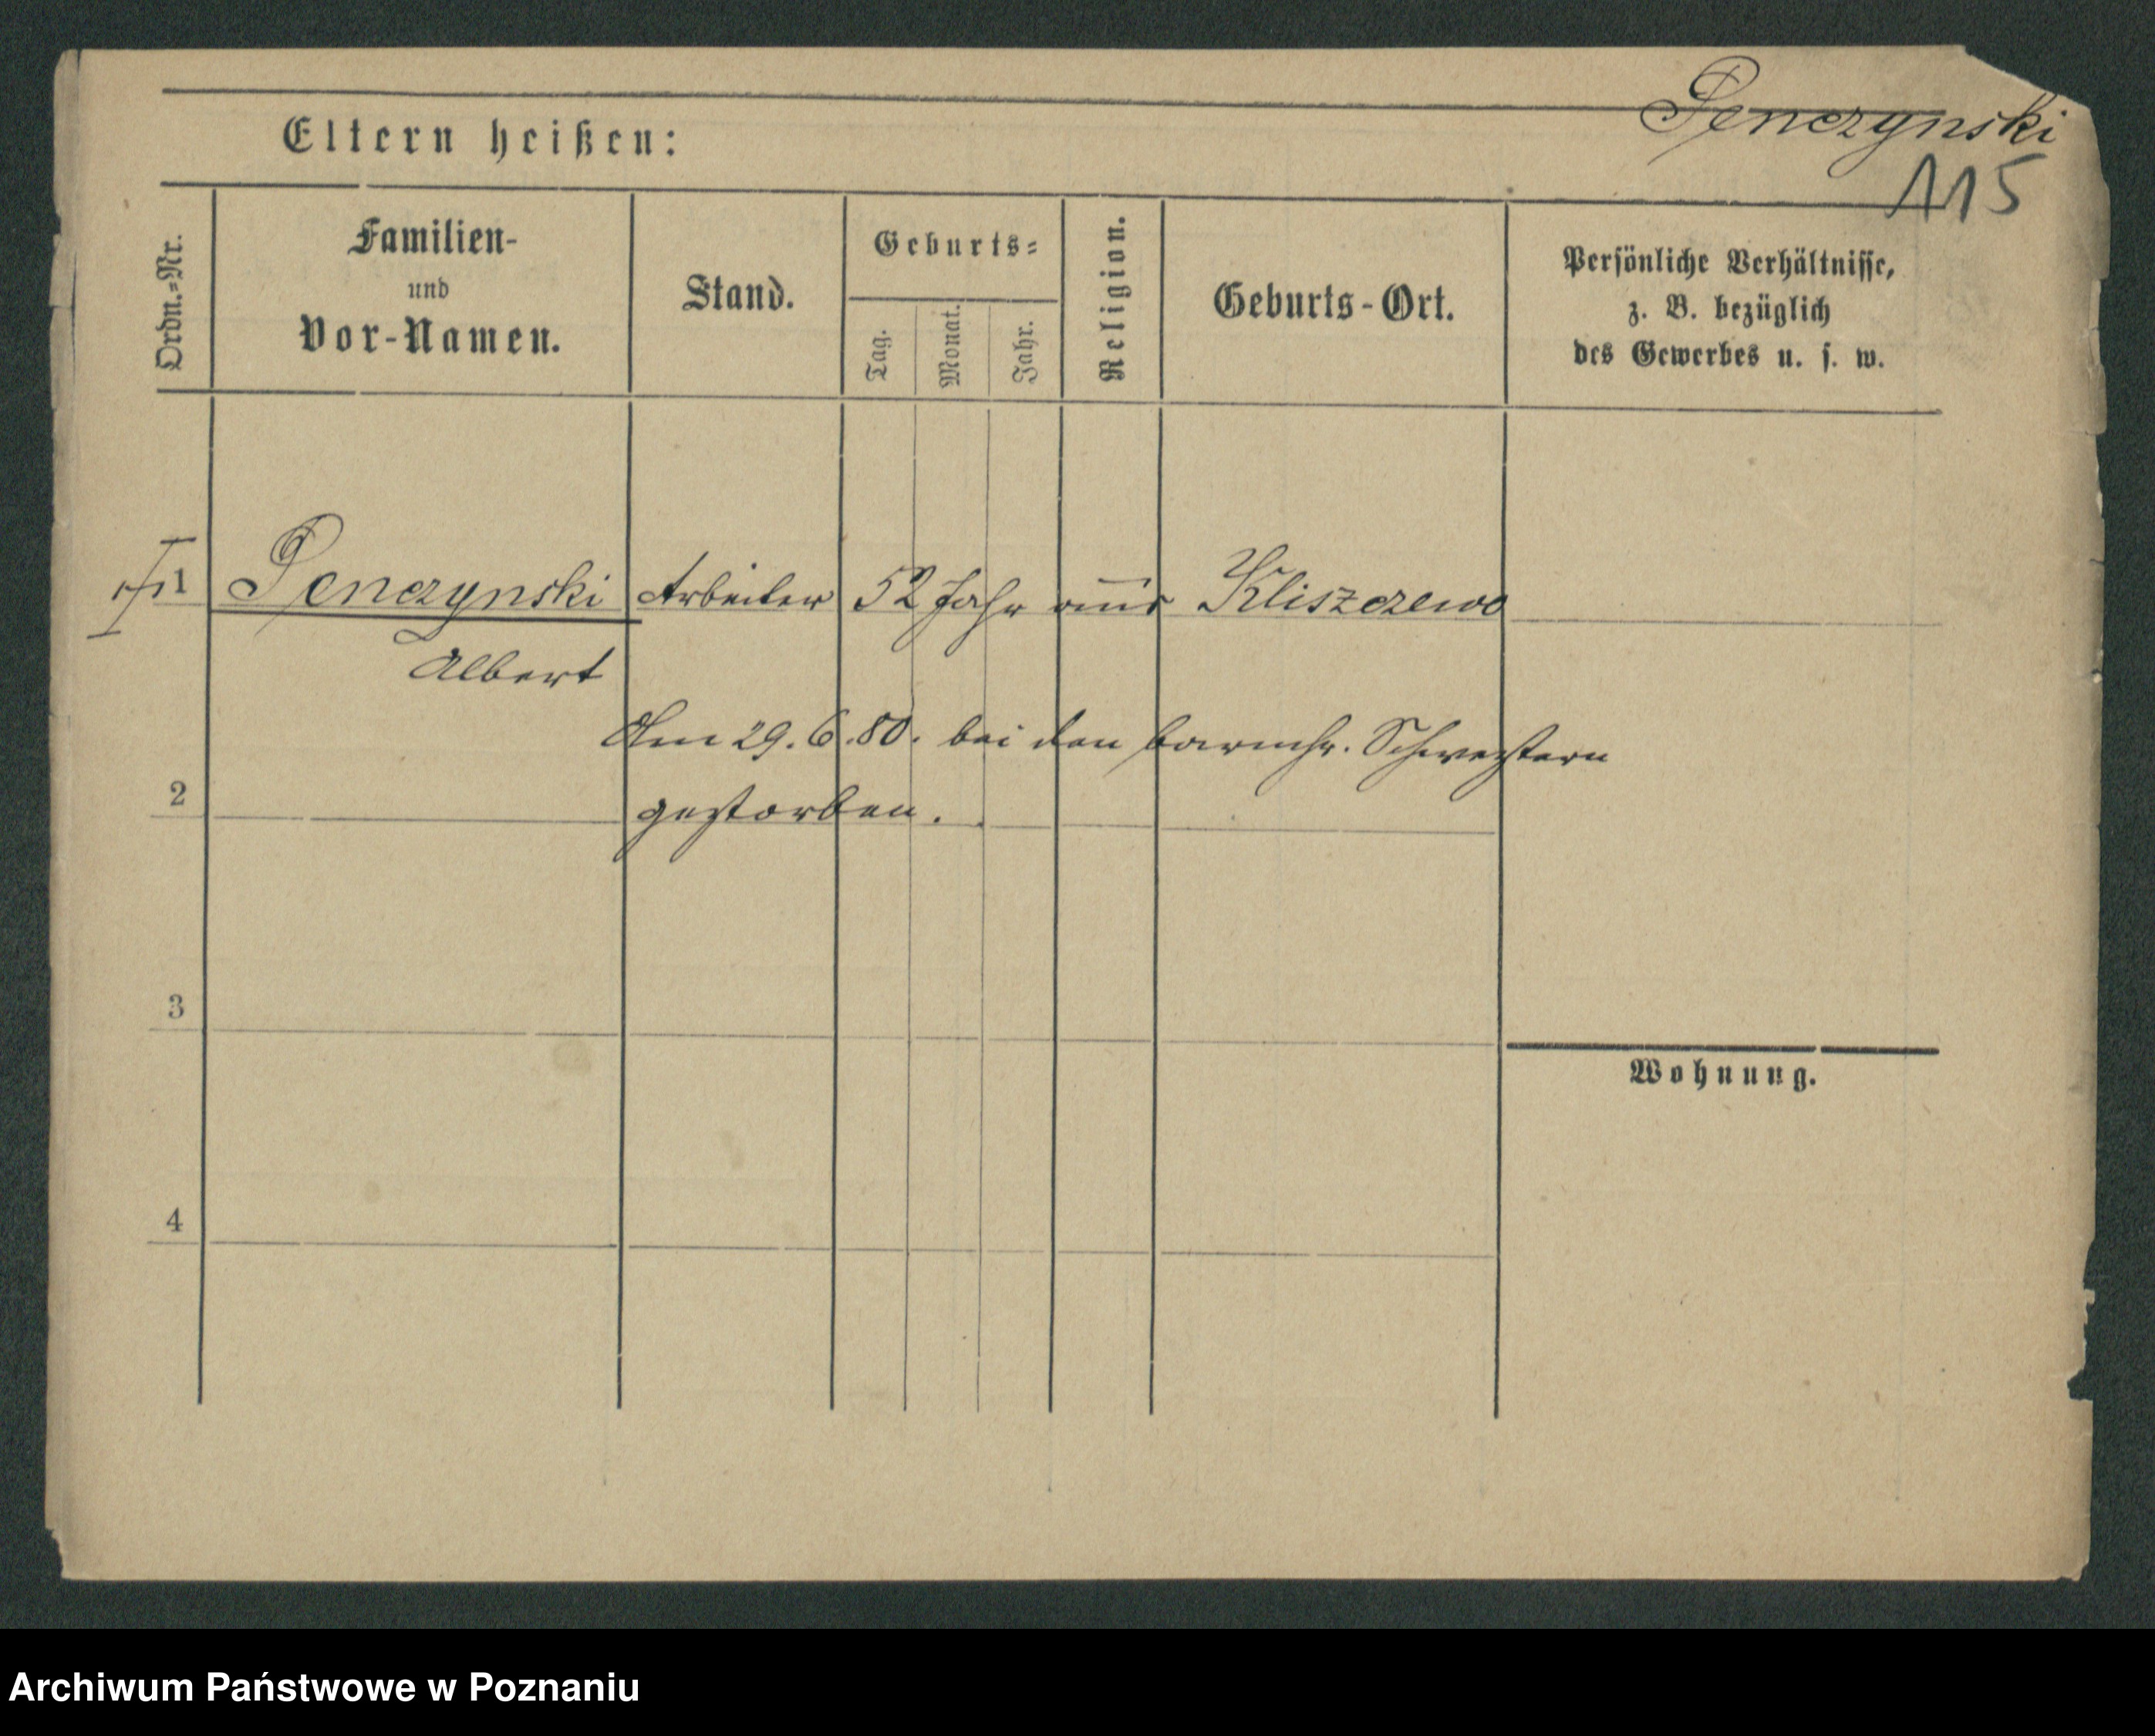 Penczynski
Eltern heißen:
115
Ordn.-Nr.
Familien-
und
Vor-Namen.
Stand.
Geburts-
Tag.
Monat.
Jahr.
Religion.
Geburts-Ort.
Persönliche Verhältnisse,
z. B. bezüglich
des Gewerbes u. s. w.
1 Penczynski Arbeiter 52 Jahr aus Kliszczewo
Albert
Am 29.6.80. bei den barmh. Schwestern
2 gestorben.
3
Wohnung.
4
Archiwum Państwowe w Poznaniu